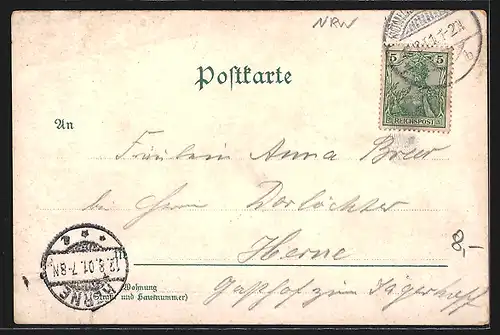 NRW
Postkarte
5 5
REICHSPOST
An
Fräulein Anna Breer
bei Herrn Dorlöchter
Herne
in
Gasthof zum Jägerhof
8,-
HERNE
12.8.01.7-8N.
a
Wohnung
(Straße und Hausnummer)